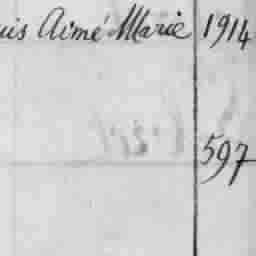 uis Aimé Marie 1914
597